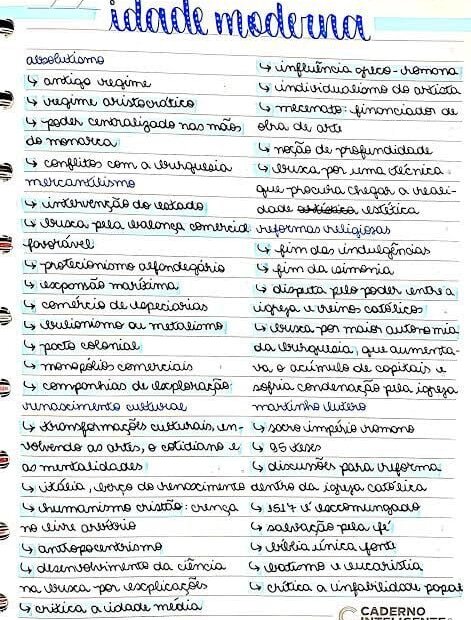 idade moderna
absolutismo
↳ antigo regime
↳ regime aristocrático
↳ poder centralizado nas mãos
do monarca
↳ conflitos com a burguesia
mercantilismo
↳ intervenção do estado
↳ busca pela balança comercial
favorável
↳ protecionismo alfandegário
↳ expansão marítima
↳ comércio de especiarias
↳ bulionismo ou metalismo
↳ pacto colonial
↳ monopólios comerciais
↳ companhias de exploração
renascimento cultural
↳ transformações culturais, en-
volvendo as artes, o cotidiano e
as mentalidades
↳ itália, berço do renascimento
↳ humanismo cristão: crença
no livre arbítrio
↳ antropocentrismo
↳ desenvolvimento da ciência
na busca por explicações
↳ crítica a idade média
↳ influência greco-romana
↳ individualismo do artista
↳ mecenato: financiador de
obra de arte
↳ noção de profundidade
↳ busca por uma técnica
que procura chegar a reali-
dade artística estética
reformas religiosas
↳ fim das indulgências
↳ fim da simonia
↳ disputa pelo poder entre a
igreja e reinos católicos
↳ busca por maior autonomia
da burguesia, que aumenta-
va o acúmulo de capitais e
sofria condenação pela igreja
martinho lutero
↳ sacro império romano
↳ 95 teses
↳ discussões para reforma
dentro da igreja católica
↳ 1517 é excomungado
↳ salvação pela fé
↳ bíblia única fonte
↳ batismo e eucaristia
↳ crítica a infabilidade papal
CADERNO
INTELIGENTE